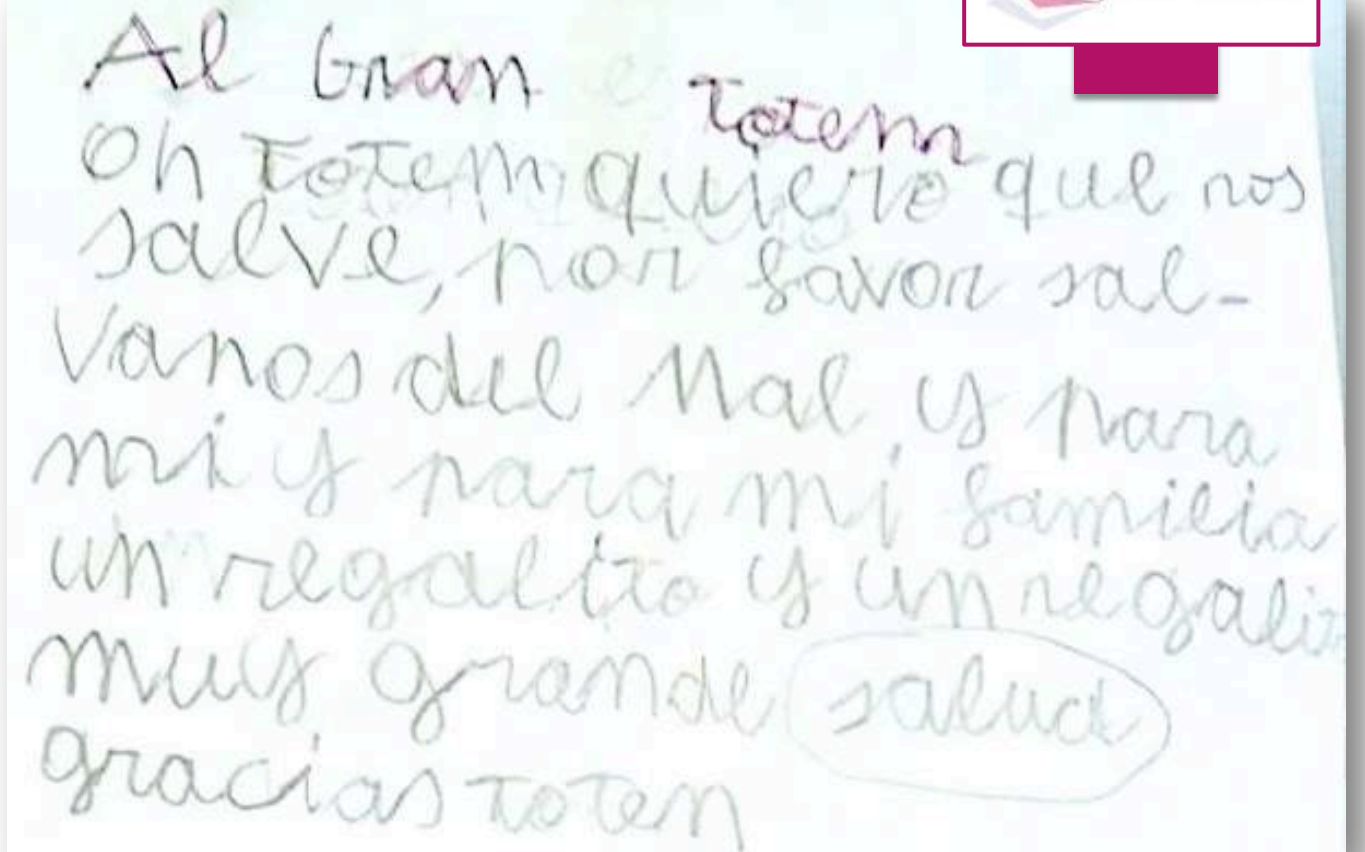 Al Gran Totem
Oh Totem quiero que nos
salve, por favor sal-
vanos del Mal, y para
mi y para mi familia
un regaltito y un regalito
muy grande salud
gracias toten